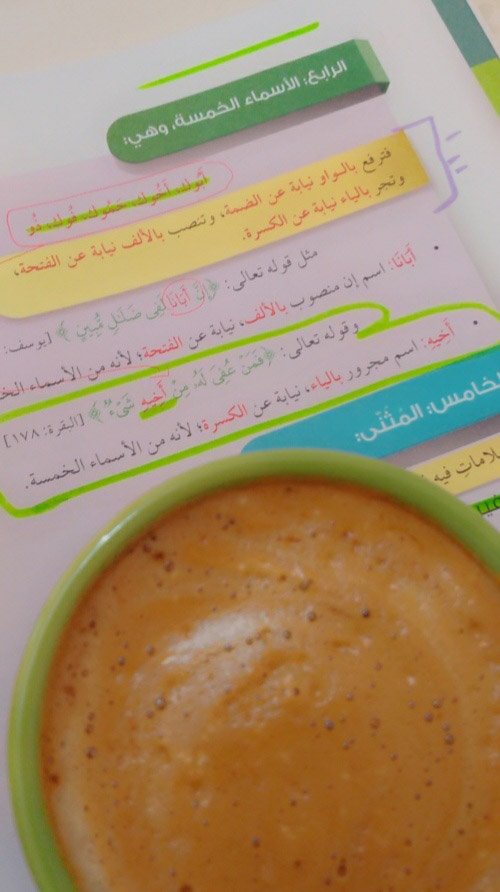 الرابع: الأسماء الخمسة، وهي:
أبُوك، أخُوك، حَمُوك، فُوك، ذُو
فترفع بالـواو نيابة عن الضمة، وتنصب بالألف نيابة عن الفتحة،
وتجر بالياء نيابة عن الكسرة.
مثل قوله تعالى: ﴿إِنَّ أَبَانَا لَفِي ضَلَالٍ مُّبِينٍ﴾ [يوسف:
• أَبَانَا: اسم إن منصوب بالألف، نيابة عن الفتحة؛ لأنه من الأسماء
وقوله تعالى: ﴿فَمَنْ عُفِيَ لَهُ مِنْ أَخِيهِ شَيْءٌ﴾ [البقرة: ١٧٨]
• أَخِيهِ: اسم مجرور بالياء، نيابة عن الكسرة؛ لأنه من الأسماء الخمسة.
الخامس: المُثَنَّى: